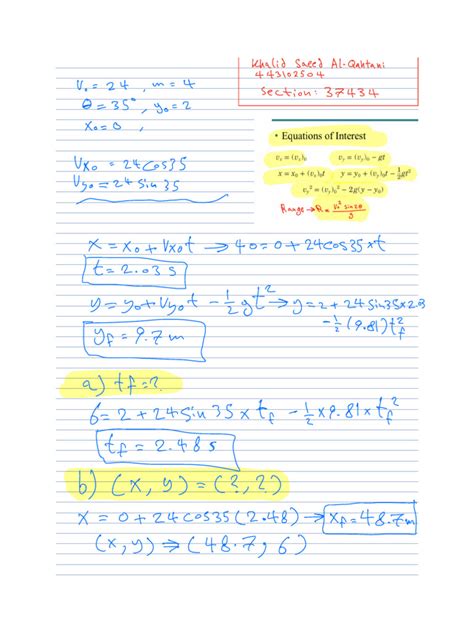 Khalid Saeed Al-Qahtani
443102504
Section: 37434
V₀ = 24 , m = 4
θ = 35° , y₀ = 2
x₀ = 0 ,
Vx₀ = 24 cos 35
Vy₀ = 24 sin 35
• Equations of Interest
vₓ = (vₓ)₀ vᵧ = (vᵧ)₀ − gt
x = x₀ + (vₓ)₀t y = y₀ + (vᵧ)₀t − ½gt²
vᵧ² = (vᵧ)₀² − 2g(y − y₀)
Range → R = V₀² sin2θ / g
x = x₀ + Vx₀t → 40 = 0 + 24 cos 35 × t
t = 2.03 s
y = y₀ + Vy₀t − ½ g t² → y = 2 + 24 sin 35 × 2.03
− ½ (9.81) t_f²
y_f = 9.7 m
a) t_f = ?
6 = 2 + 24 sin 35 × t_f − ½ × 9.81 × t_f²
t_f = 2.48 s
b) (x, y) = (?, ?)
x = 0 + 24 cos 35 (2.48) → x_f = 48.7 m
(x, y) ⇒ (48.7, 6)